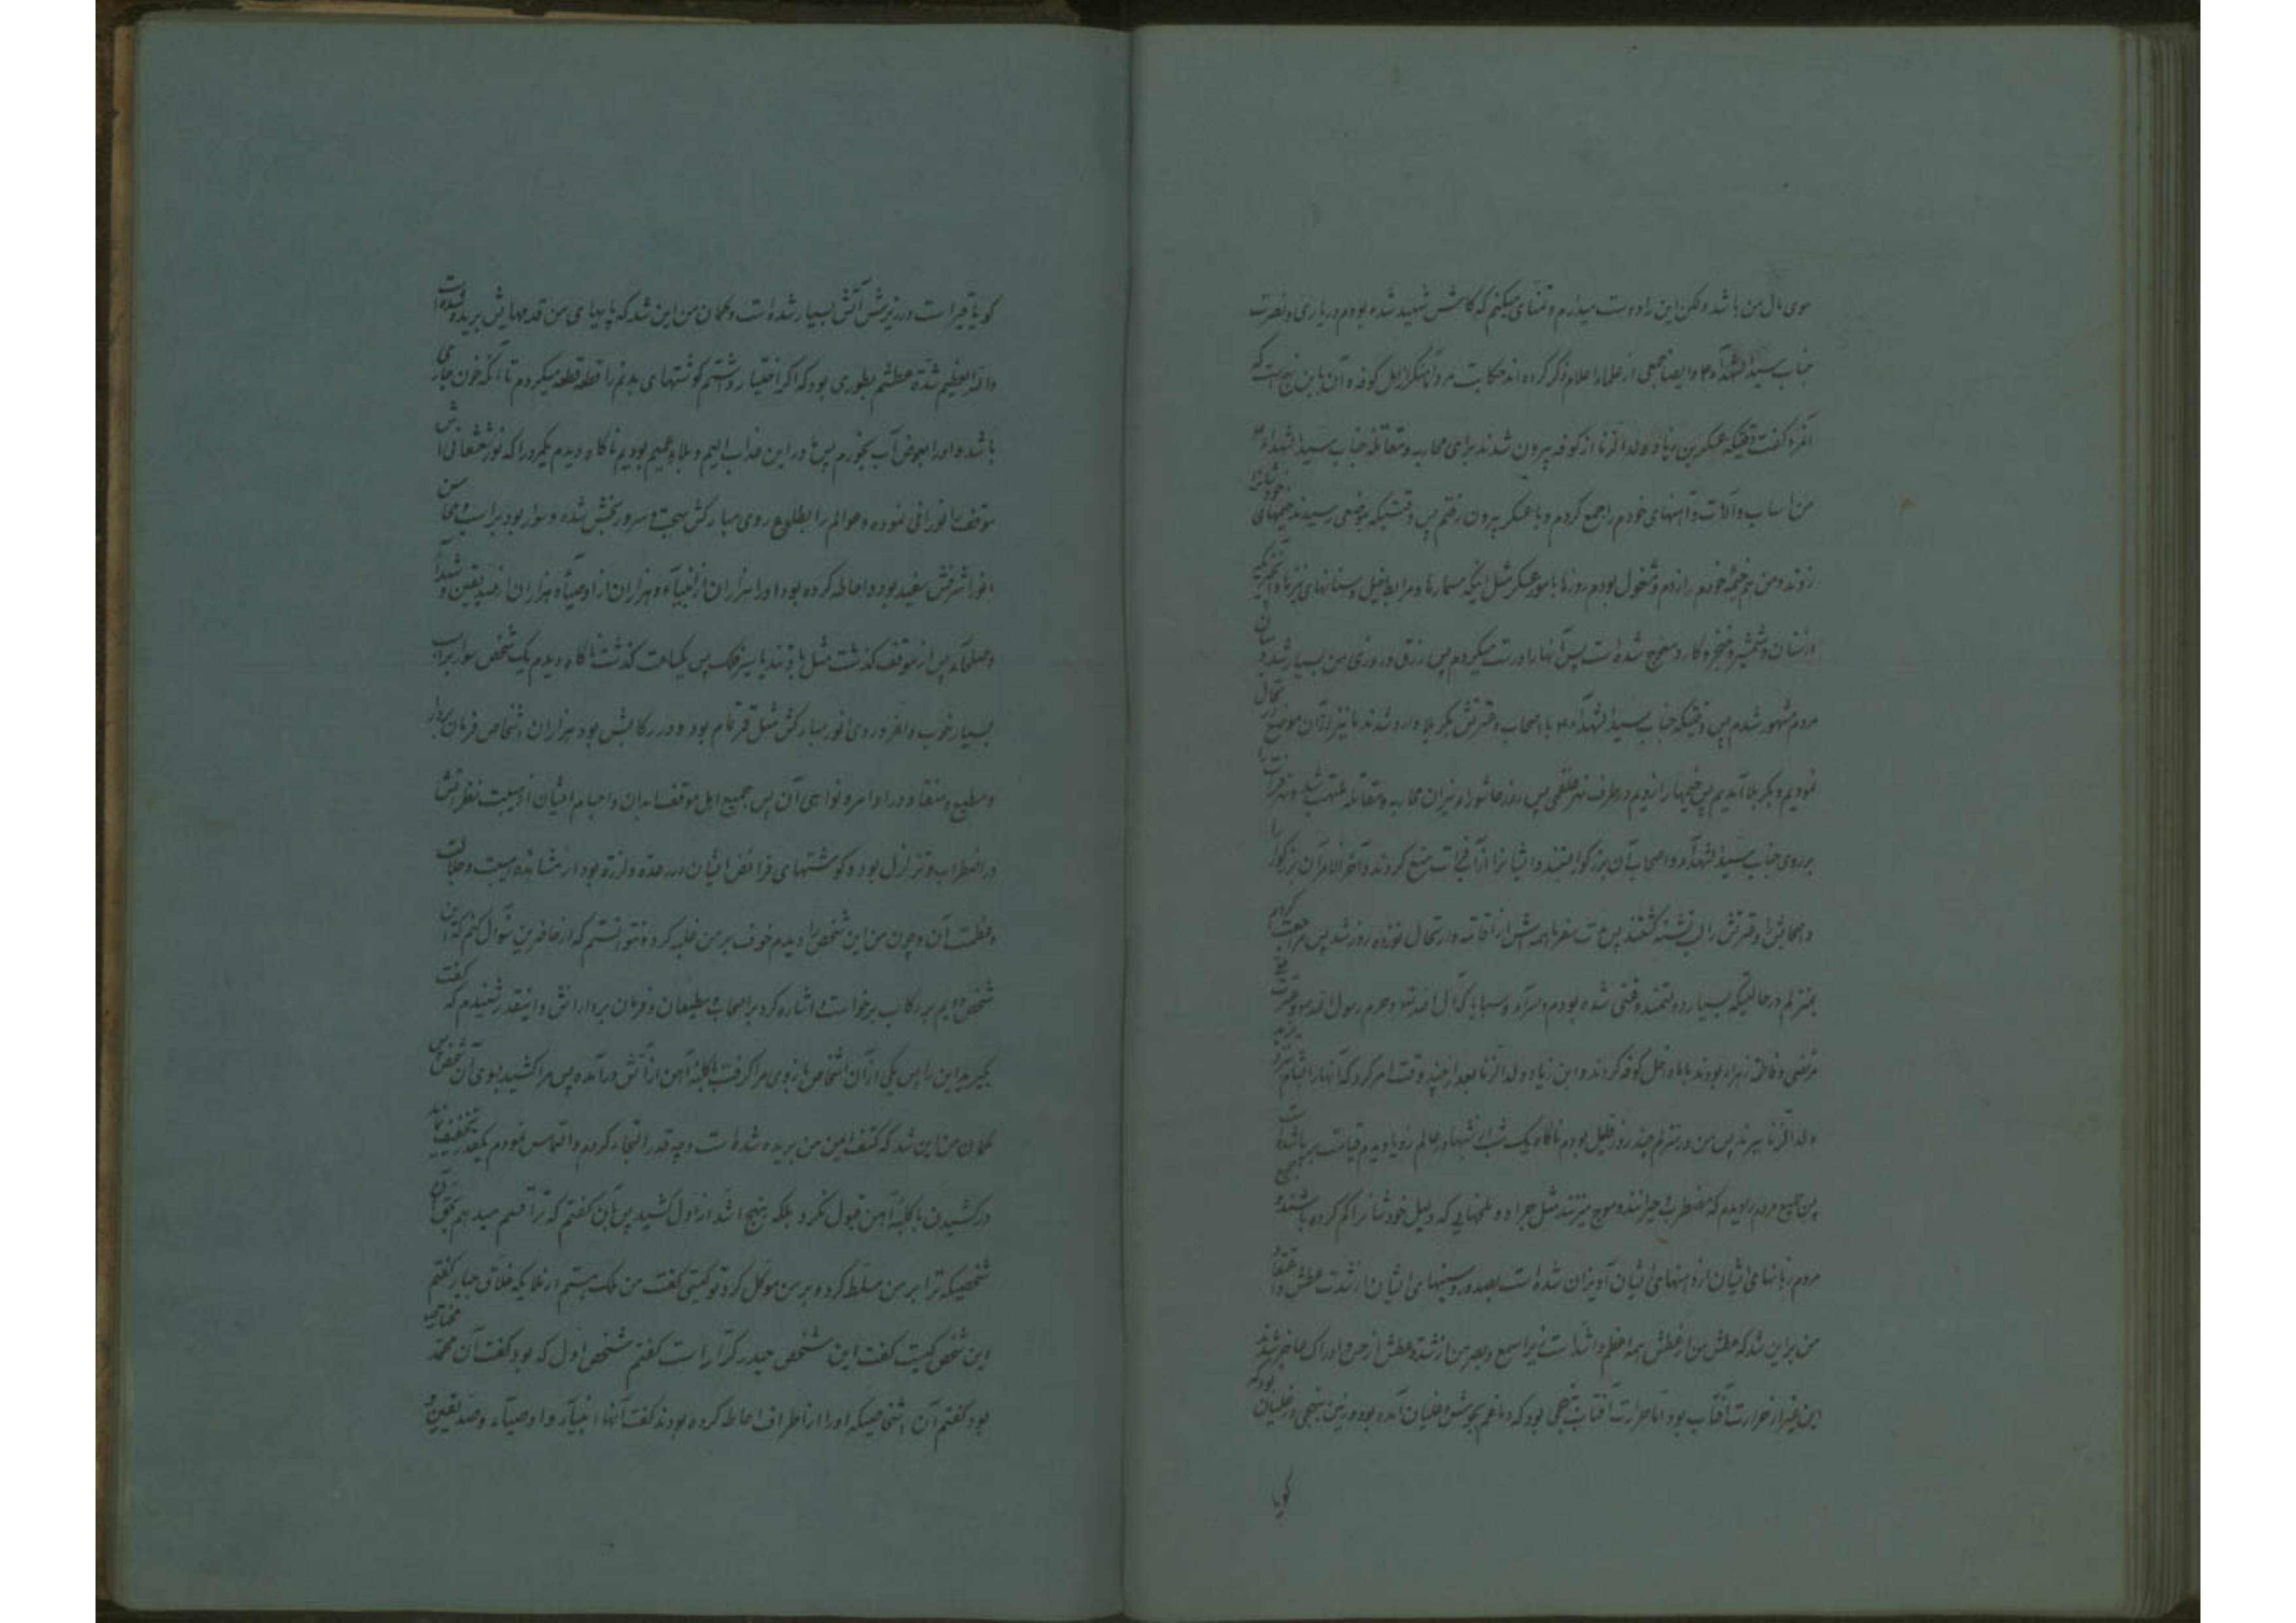 موی بال من باشد ولکن این را دوست میدارم و تمنای میکنم که کاش شهید شده بودم در یاری و نصرت
جناب سید الشهدآء و ایضا جمعی از علماء اعلام ذکر کرده اند حکایت مرد آهنگر اهل کوفه و آن باین نهج است که
آنمرد گفت وقتیکه عسکر بن زیاد ولد الزنا از کوفه بیرون شدند برای محاربه و مقاتله جناب سید الشهداء
من اسباب و آلات و آهنهای خودم را جمع کردم و با عسکر بیرون رفتم پس وقتیکه بموضعی رسیدند خیمهای خودشانرا
زدند و من هم خیمه خودم را زدم و مشغول بودم روزها بامور عسکر مثل اینکه مسمارها و مرابط خیل و سنانهای نیزها و آنچیزیکه
از سنان و شمشیر و خنجر و کارد معوج شده است پس آنها را درست میکردم پس رزق و روزی من بسیار شد و میان
مردم مشهور شدم پس وقتیکه جناب سید الشهدآء با اصحاب و عترتش بکربلا وارد شدند ما نیز از آن موضع ارتحال
نمودیم و بکربلا آمدیم پس خیمها را زدیم در طرف نهر علقمی پس روز عاشوراء نیران محاربه و مقاتله ملتهب شد و نهر فرات را
بر روی جناب سید الشهدآء و اصحاب آن بزرکوار بستند و ایشانرا از آب فرات منع کردند و آخر الامر آن بزرکوار را
و اصحابش و عترتش را لب تشنه کشتند پس مدت سفر ما همه اش از اقامه و ارتحال نوزده روز شد پس مراجعت کردم
بمنزلم در حالتیکه بسیار دولتمند و غنی شده بودم و اسرآء و سبایا که آل الله و حرم رسول الله و عترت علی
مرتضی و فاطمه زهراء بودند با ما داخل کوفه کردند و ابن زیاد ولد الزنا بعد از چند وقت امر کرد که آنها را بشام نزد یزید
ولد الزنا ببرند پس من در منزلم چند روز قلیل بودم ناکاه یک شب از شبها در عالم رؤیا دیدم قیامت بر پا شده است
پس جمیع مردم را دیدم که مضطرب و حیرانند و موج میزنند مثل جراد و ملخهایی که دلیل خودشانرا کم کرده باشند و جمیع
مردم زبانهای ایشان از دهنهای ایشان آویزان شده است بصدور و سینهای ایشان از شدت عطش و اعتقاد
من بر این شد که عطش من از عطش همه اعظم و اشد است زیرا سمع و بصر من از شدت عطش از حس و ادراک عاجز شدند
این غیر از حرارت آفتاب بود اما حرارت آفتاب بنهجی بود که دماغم بجوش و غلیان آمده بود و زمین بنهجی در غلیان بود که
کویا
کویا قیر است در زیرش آتش بسیار شده است و کمان من این شد که پایهای من قدمهایش بریده شده است
والله العظیم شدت عطشم بطوری بود که اکر اختیار داشتم کوشتهای بدنم را قطعه قطعه میکردم تا آنکه خون جاری
باشد و او را بعوض آب بخورم پس ما در این عذاب الیم و بلاء عمیم بودیم ناکاه دیدم یکمرد را که نور شعشعانی اش
موقف را نورانی نموده و عوالم را بطلوع روی مبارکش بهجت و سرور بخش شده و سوار بود بر اسب و محاسن
انور اشرفش سفید بود و احاطه کرده بود او را هزاران از انبیآء و هزاران از اوصیآء و هزاران از صدیقین و شهدآء
و صلحآء پس از موقف کذشت مثل باد تند یا سیر فلک پس یکساعت کذشت ناکاه دیدم یک شخص سوار بر اسب
بسیار خوب و اغر و روی انور مبارکش مثل قمر تمام بود و در رکابش بود هزاران اشخاص فرمان بردار
و مطیع و منقاد در اوامر و نواهی آن پس جمیع اهل موقف ابدان و اجسام ایشان از هیبت نظر آنش
در اضطراب و تزلزل بود و کوشتهای فرائض ایشان در رعده و لرزه بود از مشاهده هیبت و جلالت
و عظمت آن و چون من این شخص را دیدم خوف بر من غلبه کرد و نتوانستم که از حاضرین سؤال کنم که این
شخص دویم بر رکاب برخواست و اشاره کرد بر اصحاب و مطیعان و فرمان بردارانش و اینقدر شنیدم که کفت
بگیرید این را پس یکی از آن اشخاص بازوی مرا کرفت با کلبه آهن از آتش در آمده پس مرا کشید بسوی آن شخص پس
کمان من این شد که کتف ایمن من بریده شده است و چه قدر التجاء کردم و التماس نمودم یکقدر تخفیف نماید
در کشیدن با کلبه آهن قبول نکرد بلکه بنهج اشد از اول کشید پس بآن کفتم که ترا قسم میدهم بحق آن
شخصیکه ترا بر من مسلط کرد و بر من موکل کرد تو کیستی کفت من ملک هستم از ملایکه خلاق جبار کفتم
این شخص کیست کفت این شخص حیدر کرار است کفتم شخص اول که بود کفت آن محمد مختار
بود کفتم آن اشخاصیکه او را از اطراف احاطه کرده بودند کفت آنها انبیآء و اوصیآء و صدیقین و